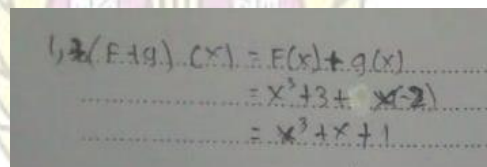 1, (F+g) (x) = F(x) + g(x)
= x³+3+ x(-2)
= x³+x+1